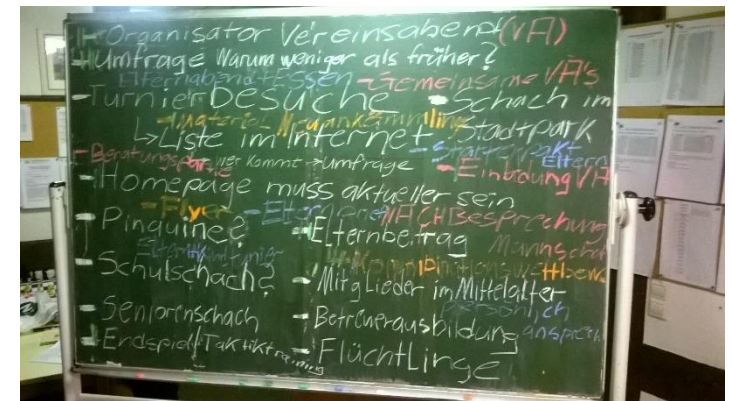 - Organisator Vereinsabend (VA)
- Umfrage Warum weniger als früher?
Elternabend + Essen - Gemeinsame VA's
- Turnierbesuche - Schach im
- Material Neuankömmling Stadtpark
↳ Liste im Internet
- Starterpaket Eltern
- Beratungspartie wer kommt → Umfrage - Einbindung VA
- Homepage muss aktueller sein
- Flyer - Elternbeirat NACHBesprechung
- Pinguine? - Elternbeitrag Mannschaft
Elternturnier
- Kombinationswettbewerb
- Schulschach? - Mitglieder im Mittelalter
persönlich
- Seniorenschach - Betreuerausbildung
- Endspiel/Taktiktraining - Flüchtlinge